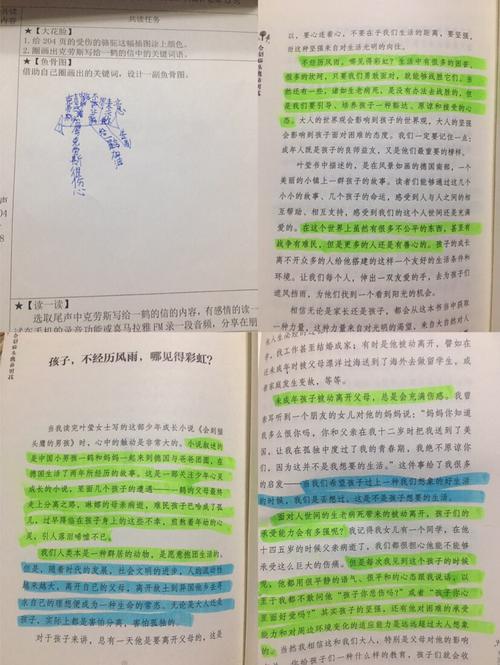 共读内容
共读任务
★【大花脸】
1. 给 204 页的受伤的骆驼这幅插图涂上颜色。
2. 圈画出克劳斯写给一鹤的信中的关键词语。
★【鱼骨图】
借助自己圈画出的关键词,设计一副鱼骨图。
克劳斯很伤心
声
04
8
★【读一读】
选取尾声中克劳斯写给一鹤的信的内容,有感情的读一
试在手机的录音功能或喜马拉雅 FM 录一段音频,分享在朋
会刻猫头鹰的男孩
以,要心连着心,不要在乎我们生活的距离,要坚强,
而这种坚强来自对生活光明的向往。
不经历风雨,哪见得彩虹?生活中有很多的困苦,
很多的坎坷,只要我们勇敢面对,就能够战胜它们。当
然还有一些,诸如生老病死,是没有办法去战胜的,但
是我们要引导、培养孩子一种豁达、原谅和接受的心
态。大人的世界观会影响到孩子的世界观,大人的坚强
会影响到孩子面对困难的态度。我们一定要记住一点:
成年人既是孩子的良师益友,又是他们最重要的榜样。
叶莹书中描述的,是在风景如画的德国南部,一个
美丽的小镇上一群孩子的故事。读者们能够通过这几个
小小的故事、几个孩子的命运,感受到人与人之间的相
互帮助、相互支持,感受到我们的这个人世间还是充满
爱的。在这个世界上虽然有很多不公平的东西,甚至有
战争有难民,但是更多的人还是有善心的。孩子的成
长离不开众多的人给他搭建的这样一个友好的生活条件和
环境。让我们每个人,伸出一双友爱的手,去为孩子们
遮风挡雨,为他们找到一个看到阳光的机会。
相信无论是家长还是孩子,都会从这本书当中获取
一种力量,这种力量来自对光明的渴望,来自大自然对人
会刻猫头鹰的男孩
孩子,不经历风雨,哪见得彩虹?
当我读完叶莹女士写的这部少年成长小说《会刻猫
头鹰的男孩》时,心中的触动是非常大的。小说叙述的
是中国小男孩一鹤和妈妈一起来到德国与爸爸团圆,在
德国生活了两年所经历的故事。这是一部关注少年心灵
成长的小说,里面几个孩子的遭遇——一鹤的父母最终
走上分离之路,琳娜的母亲病逝,难民孩子巴哈成了孤
儿,过早降临在孩子身上的这些不幸,煎熬着年幼的心
灵,引人落泪唏嘘不已。
我们人类本是一种群居的动物,是愿意抱团生活的。
但是,随着时代的发展,社会文明的进步,人的流动性
越来越大,离开自己的父母,离开故土到异国他乡去寻
求自己的理想便成为一种生命的常态。无论是大人还是
孩子,实际上都是害怕分离、害怕孤独的。
对于孩子来讲,总有一天他是要离开父母的,这是
学、找工作甚至结婚成家;有时是他被动离开,譬如在
年少时被父母漂洋过海送到了海外去做留学生,或
者家庭发生变故,等等。
未成年孩子被动离开父母,总是会充满伤感。我曾
有耳听到一个朋友的女儿对他的妈妈说:"妈妈你知道
我多么恨你吗,你和父亲在我十二岁时把我送到了美
国,让我在孤独中度过了我的青春期,我绝不原谅你
们,因为这并不是我想要的生活。"这件事给了我很多
的启发——当我们希望孩子过上一种我们想象的好生活
的时候,我们是否想过,这是不是孩子想要的生活。
面对人世间的生老病死带来的被动离开,孩子们的
承受能力会有多强呢?我记得我女儿有一个同学,在他
十四五岁的时候父亲病逝了,我们都很担心他能不能够
承受这么巨大的伤痛。但是每次我见到这个孩子的时
候,他都用很平静的语气、很平和的心态跟我说话,以
至于我都不敢问他"孩子你悲伤吗?"或者"孩子你心
里面好受吗?"其实孩子的坚强,还有他对困难的承受
能力和对周边环境变化的适应能力是远远超过大人想象
的。当然我相信这和我们大人,特别是父母对他的影响